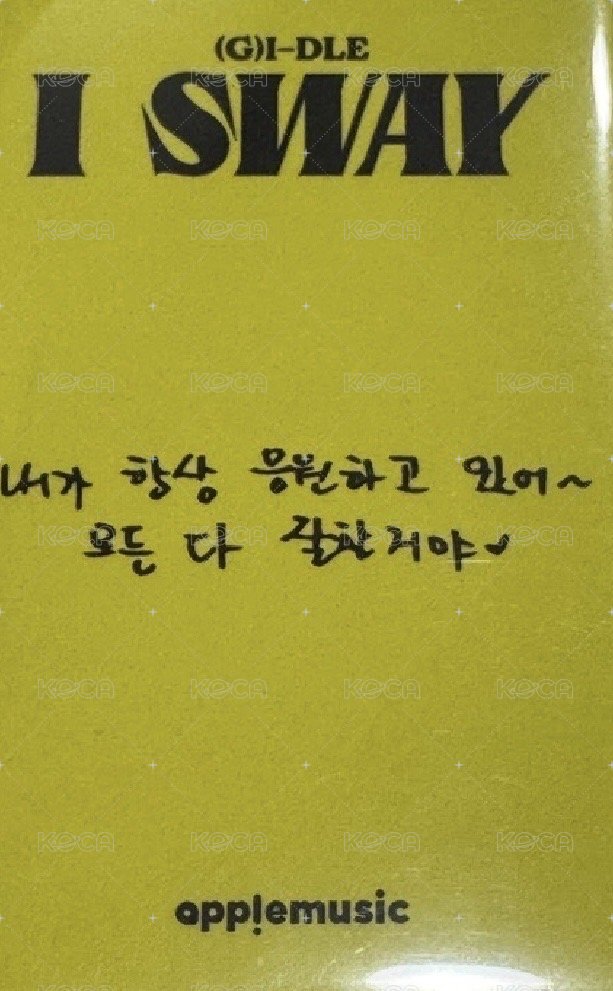 (G)I-DLE
I SWAY
KOCA KOCA KOCA KOCA
KOCA KOCA KOCA KOCA
내가 항상 응원하고 있어~
모든 다 잘할거야♥
KOCA KOCA KOCA KOCA
KOCA KOCA KOCA KOCA
app!emusic